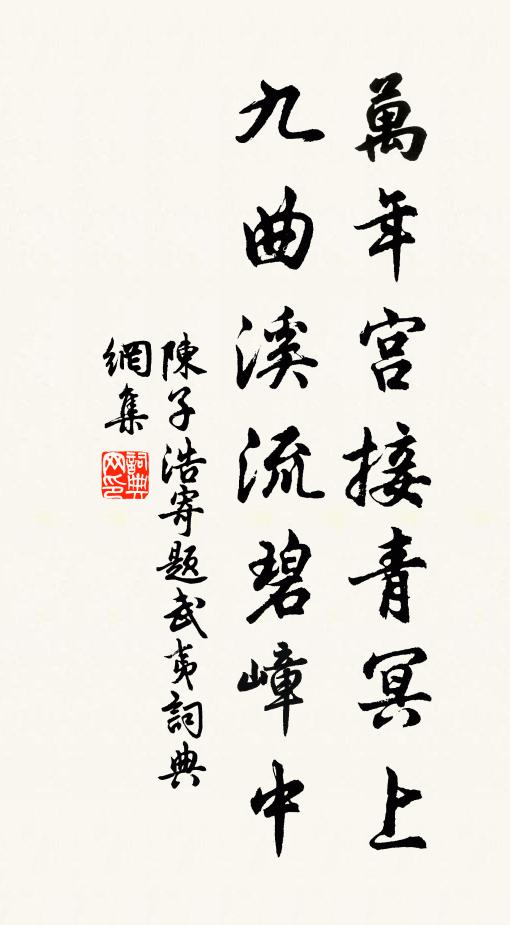 萬年宫接青冥上
九曲溪流碧嶂中
陳子浩寄题武夷詞典
網集
詞典网印